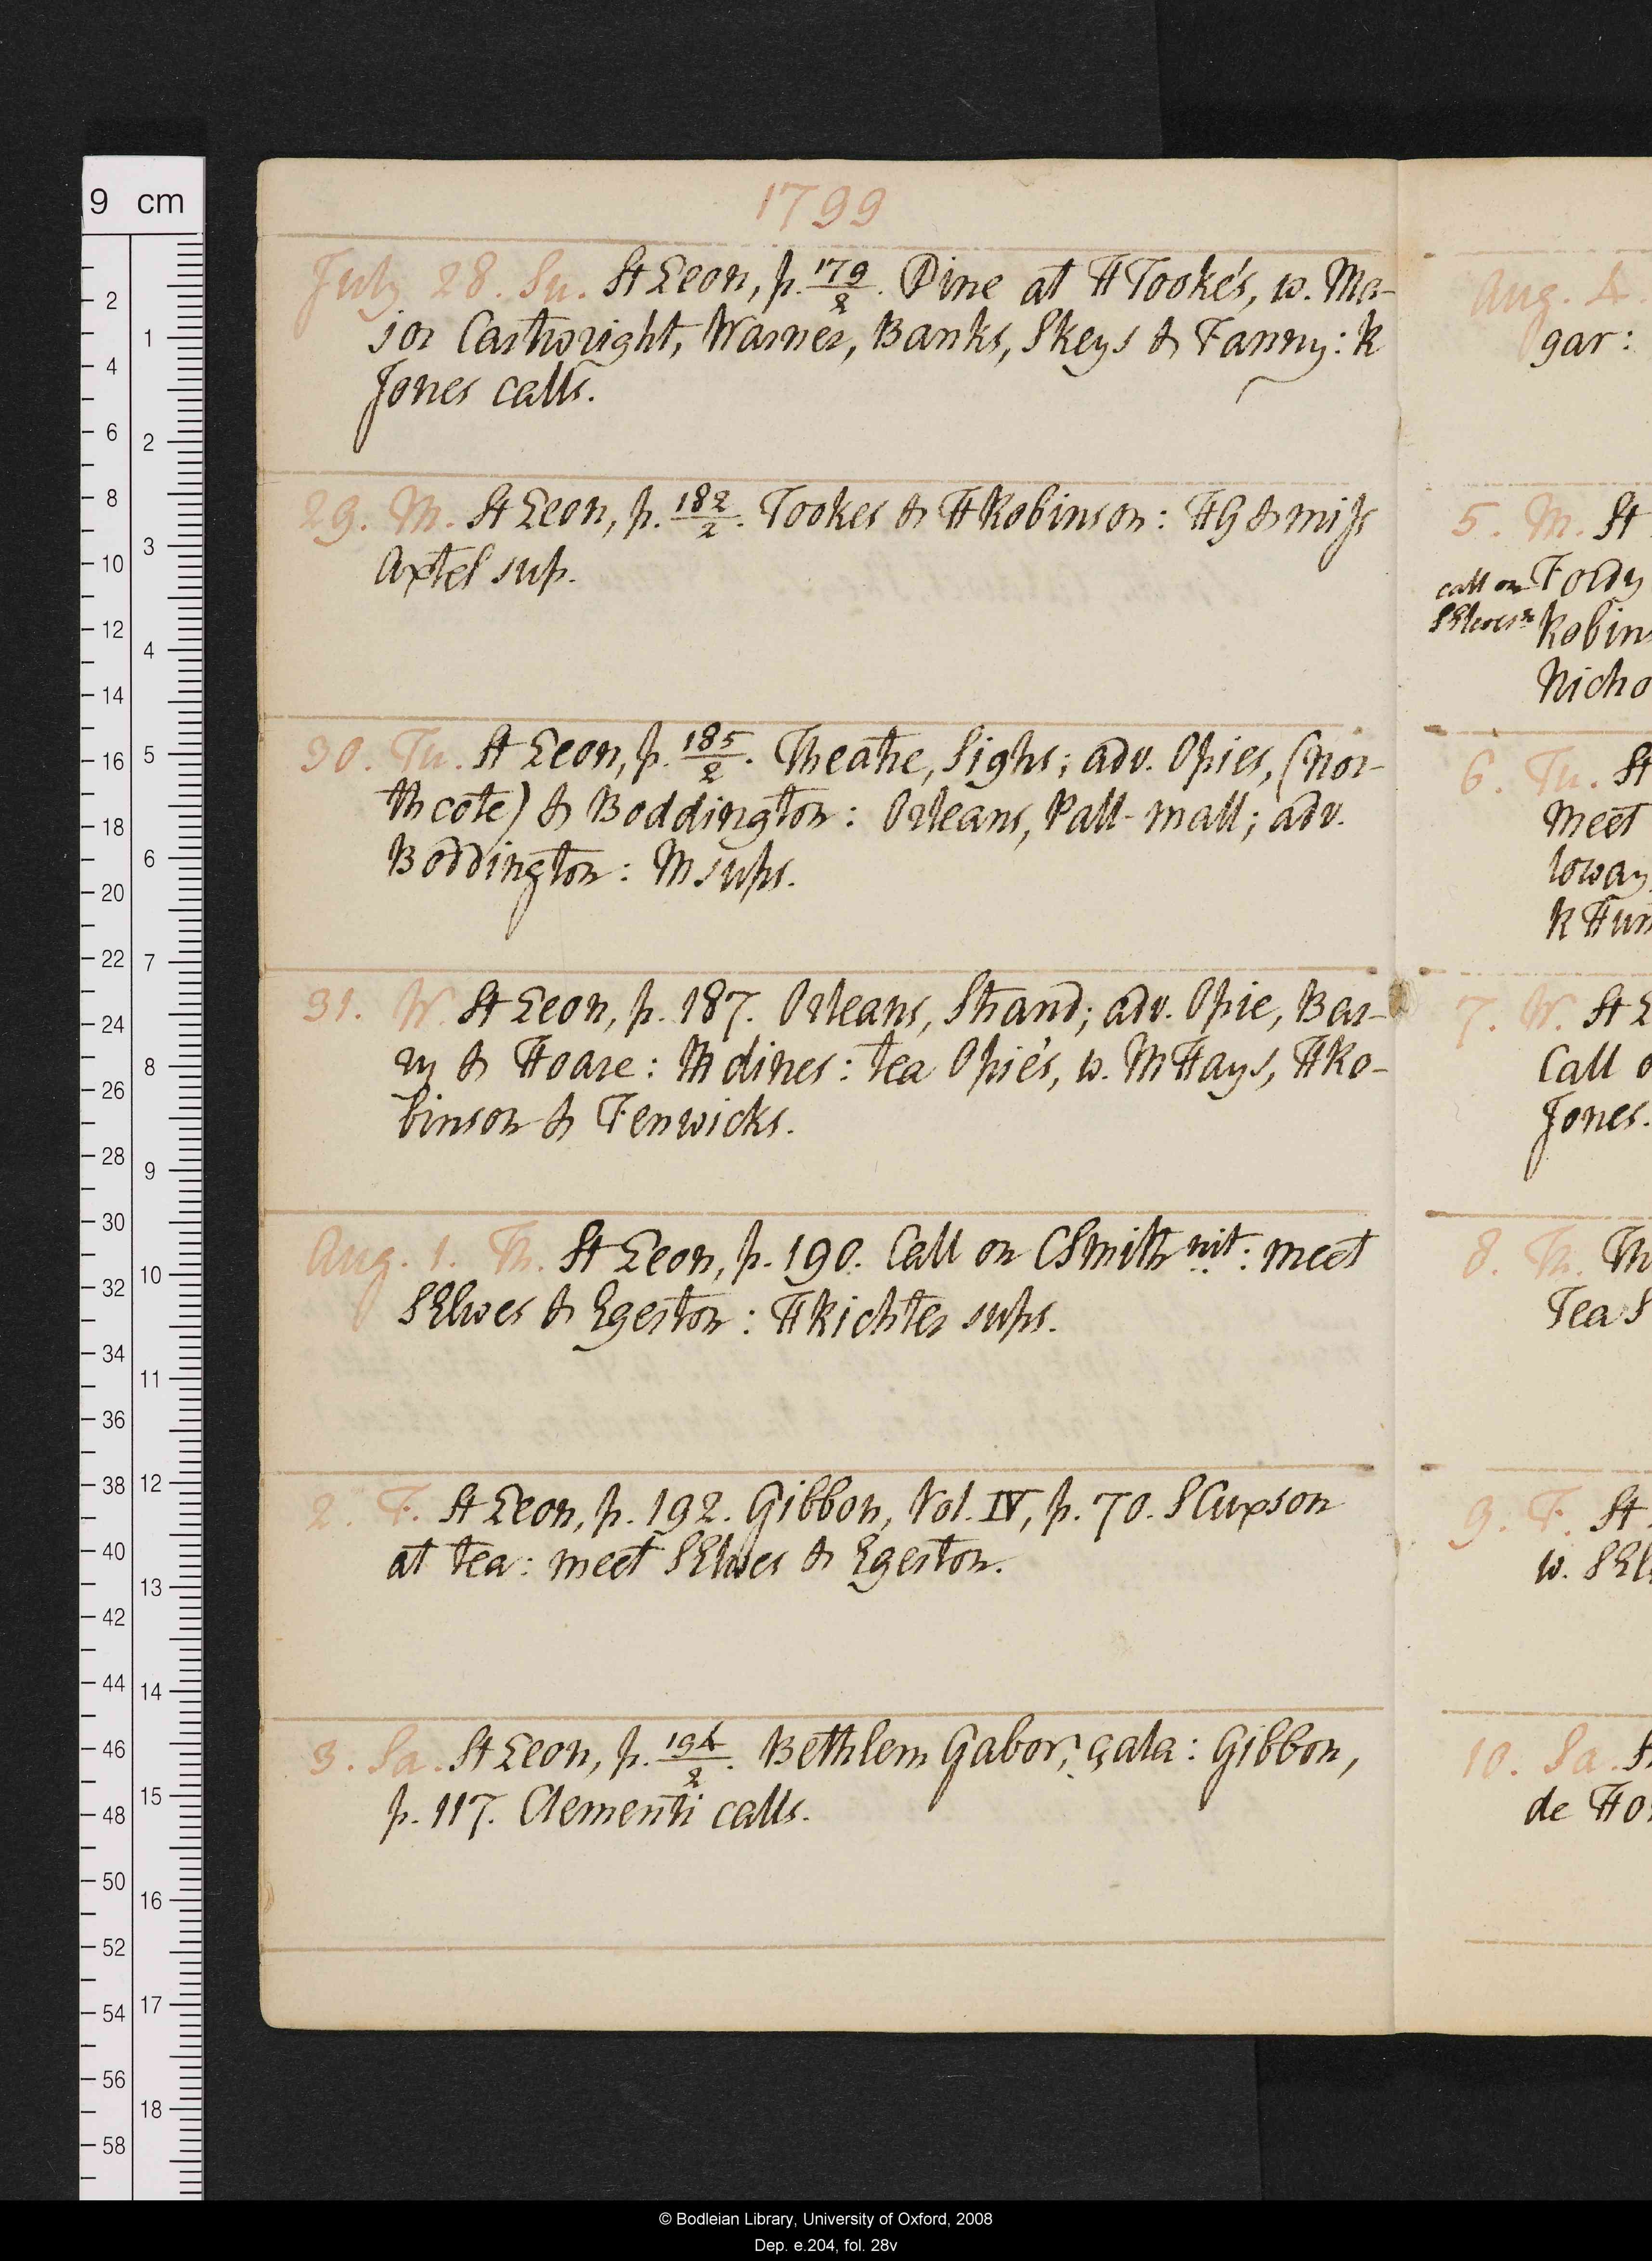 1799
July 28. Su. St Leon, p. 179/2. Dine at H Tooke's, w. Ma-
jor Cartwright, Warner, Banks, Skeys & Fanny: R
Jones calls.
29. M. St Leon, p. 182/2. Tookes & H Robinson: H G & miss
Axtel sup.
30. Tu. St Leon, p. 185/2. Theatre, Sighs; adv. Opies, (Nor-
thcote) & Boddington: Orleans, Pall-mall; adv.
Boddington: M sups.
31. W. St Leon, p. 187. Orleans, Strand; adv. Opie, Bar-
ry & Hoare: M dines: tea Opie's, w. M Hays, H Ro-
binson & Fenwicks.
Aug. 1. Th. St Leon, p. 190. Call on C Smith nit: meet
S Elwes & Egerton: H Richter sups.
2. F. St Leon, p. 192. Gibbon, Vol. IV, p. 70. S Cuxson
at tea: meet S Elwes & Egerton.
3. Sa. St Leon, p. 194/2. Bethlem Gabor, gala: Gibbon,
p. 117. Clementi calls.
Aug. 4.
gar:
5. M. St
call on Fordy
S Elwes Robins
Nicho
6. Tu. St
Meet
loway
R Hun
7. W. St L
Call o
Jones.
8. Th. Th
Tea S
9. F. St
w. S El
10. Sa. S
de Ho
9 cm
2
4
6
8
10
12
14
16
18
20
22
24
26
28
30
32
34
36
38
40
42
44
46
48
50
52
54
56
58
1
2
3
4
5
6
7
8
9
10
11
12
13
14
15
16
17
18
© Bodleian Library, University of Oxford, 2008
Dep. e.204, fol. 28v